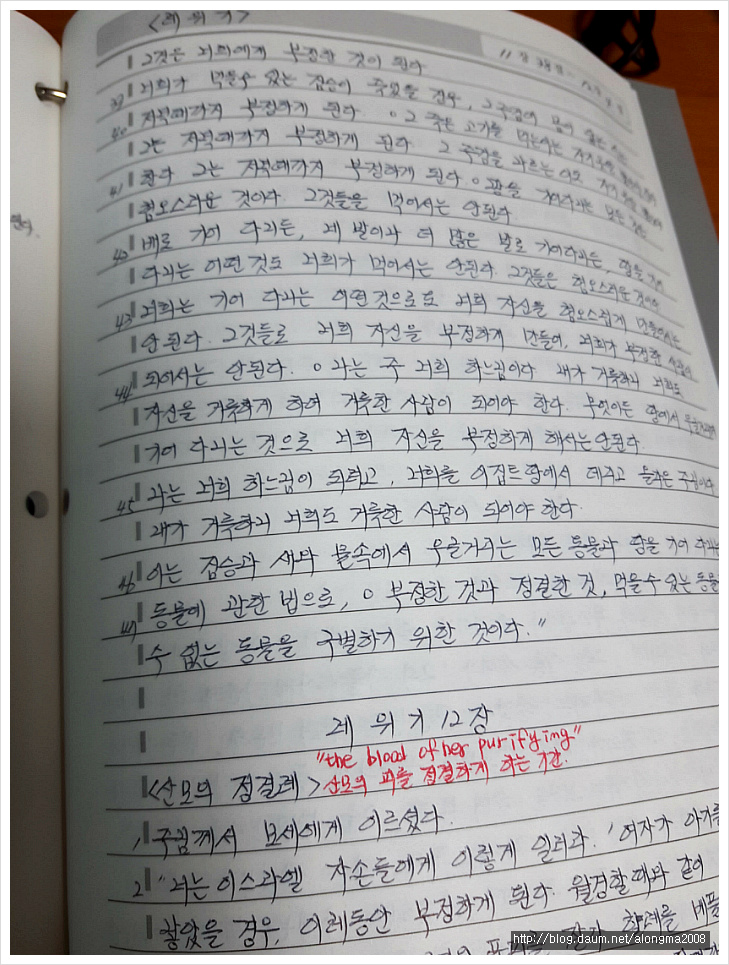 <레 위 기>
그것은 너희에게 부정한 것이 된다
39 너희가 먹을수 있는 짐승이 죽었을 경우, 그 주검에 몸이 닿은 이는
40 저녁때까지 부정하게 된다. ○ 그 죽은 고기를 먹는이는
그는 저녁때까지 부정하게 된다. 그 주검을 나르는 이도
41 한다 그는 저녁때까지 부정하게 된다. ○ 땅을 기어다니는 모든 것은
혐오스러운 것이다. 그것들을 먹어서는 안된다
배로 기어 다니든, 네 발이나 더 많은 발로 기어다니든, 땅을 기어
다니는 어떤 것도 너희가 먹어서는 안된다. 그것들은 혐오스러운 것이다
43 너희는 기어 다니는 어떤것으로도 너희 자신을 혐오스럽게 만들어서는
안된다. 그것들로 너희 자신을 부정하게 만들어, 너희가 부정한
44 되어서는 안된다. ○ 나는 주 너희 하느님이다 내가 거룩하니 너희도
자신을 거룩하게 하여 거룩한 사람이 되어야 한다. 무엇이든 땅에서
기어 다니는 것으로 너희 자신을 부정하게 해서는안된다.
45 나는 너희 하느님이 되려고, 너희를 이집트땅에서 데리고 올라온 주님이다
내가 거룩하니 너희도 거룩한 사람이 되어야 한다.
46 이는 짐승과 새와 물속에서 우글거리는 모든 동물과 땅을 기어 다니는
47 동물에 관한 법으로, ○ 부정한 것과 정결한 것, 먹을수 있는 동물
수 없는 동물을 구별하기 위한 것이다."
레 위 기 12장
"the blood of her purifying"
<산모의 정결례> 산모의 피를 정결하게 하는 기간.
1 주님께서 모세에게 이르셨다.
2 "너는 이스라엘 자손들에게 이렇게 일러라. '여자가 아기를
낳았을 경우, 이레동안 부정하게 된다. 월경할때와 같이
할례를 베풀
http://blog.daum.net/alongma2008